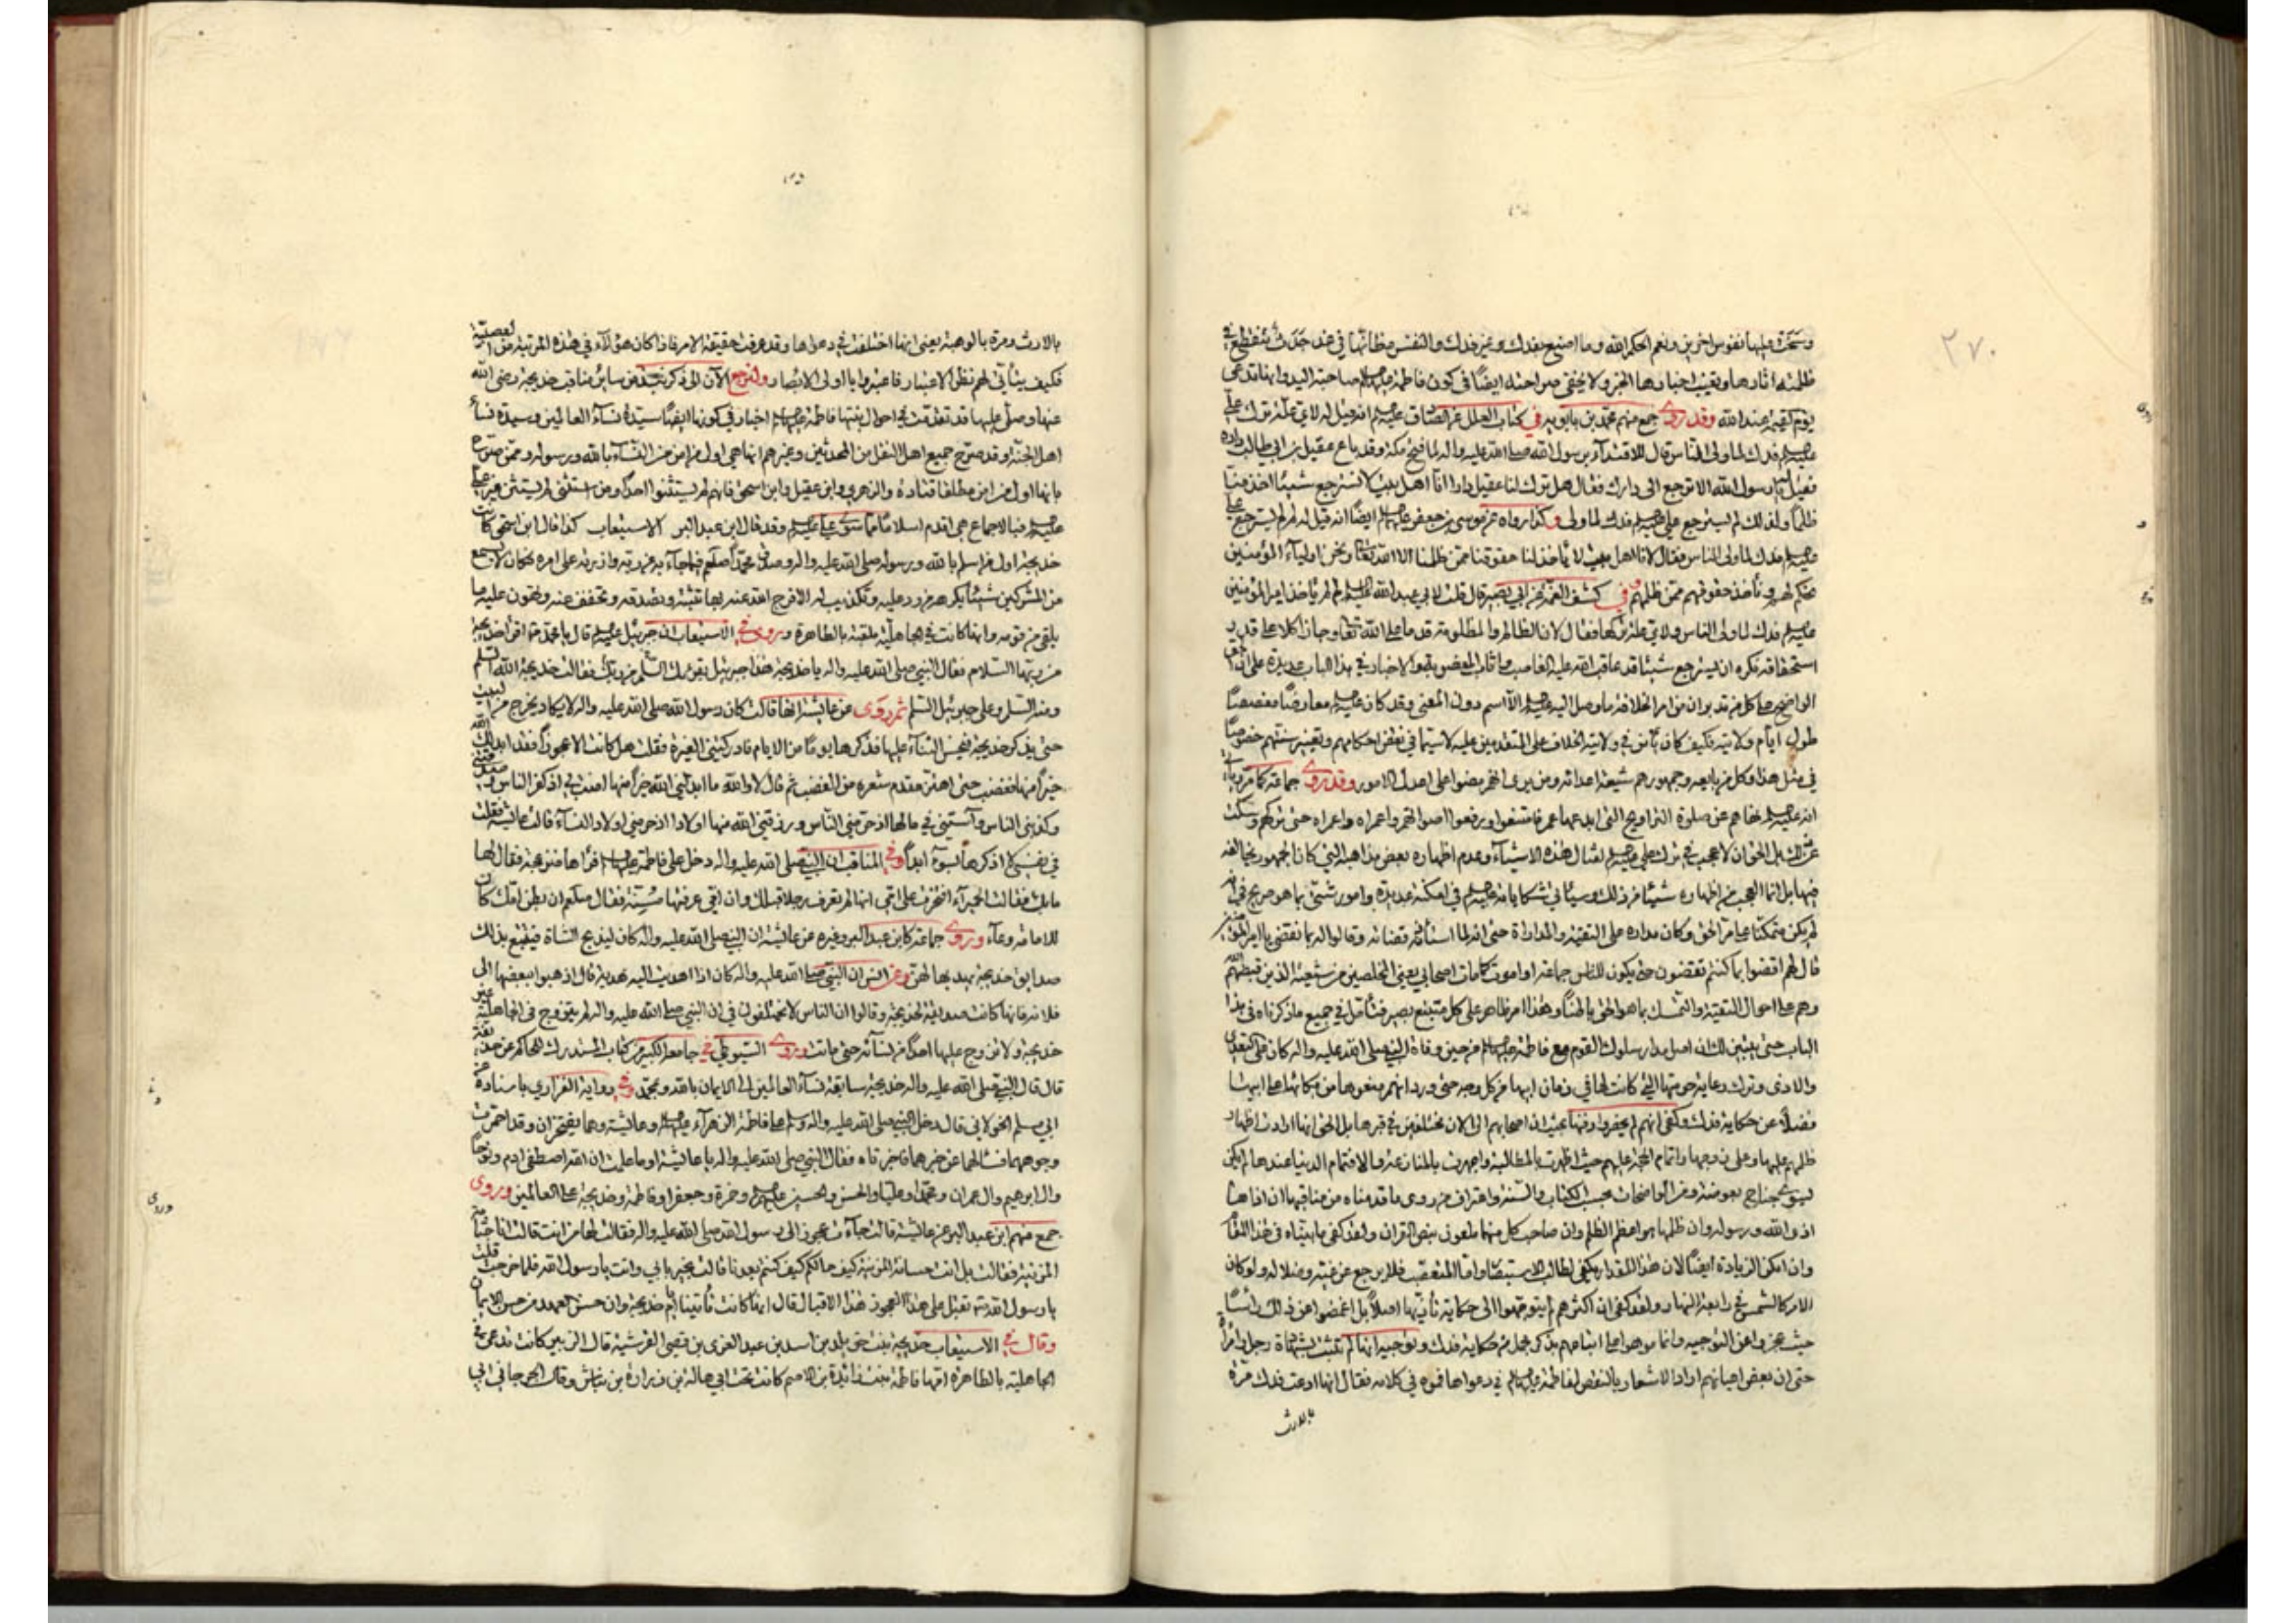 ٢٧٠
وسخت عليها نفوس اخرين ونعم الحكم الله وما اصنع بفدك وغير فدك والنفس مظانها في غد جدث تنقطع في
ظلمته اثارها وتغيب اخبارها الخبر ولا يخفى صراحته ايضا في كون فاطمة عليها السلم صاحبة اليد وانها تدعى
يوم القيمة عند الله وقد روى جمع منهم محمد بن بابويه في كتاب العلل عن الصادق عليه السلم انه قيل له لاي علة ترك على
عليه السلم فدك لما ولى الناس قال للاقتداء برسول الله صلى الله عليه واله لما فتح مكة وقد باع عقيل بن ابي طالب داره
فقيل له يا رسول الله الا ترجع الى دارك فقال هل ترك لنا عقيل دارا انا اهل بيت لا نسترجع شيئا اخذ منا
ظلما ولذلك لم يسترجع على عليه السلم فدك لما ولى وكذا رواه عن موسى بن جعفر عليه السلم ايضا انه قيل له لم لم يسترجع على
عليه السلم فدك لما ولى الناس فقال لانا اهل بيت لا يأخذ لنا حقوقنا ممن ظلمنا الا الله تعالى ونحن اولياء المؤمنين
نحكم لهم و نأخذ حقوقهم ممن ظلمهم وفي كشف الغمة عن ابي بصير قال قلت لابي عبد الله عليه السلم لم لم يأخذ امير المؤمنين
عليه السلم فدك لما ولى الناس ولاي علة تركها فقال لان الظالم والمظلومة قد قدما على الله تعالى وجازا كلا على قدر
استحقاقه فكره ان يسترجع شيئا قد عاقب الله عليه الغاصب واثاب المغصوبة والاخبار في هذا الباب عديدة على ان من
الواضح على كل من تدبر ان من امر الخلافة ما وصل اليه عليه السلم الا اسم دون المعنى وقد كان عليه السلم معارضا مغصصا
طول ايام ولايته فكيف كان يأمن في ولايته الخلاف على المتقدمين عليه لاسيما في نقض احكامهم وتغيير سنتهم خصوصا
في مثل هذا وكل من بايعه وجمهورهم شيعة اعدائه ومن يرى انهم مضوا على اعدل الامور وقد روى جماعة كما مر وياتى
انه عليه السلم نهاهم عن صلوة التراويح التى ابدعها عمر فامتنعوا ورفعوا اصواتهم واعمراه واعمراه حتى تركهم وسكت
عن ذلك بل الحق ان لا عجب في ترك على عليه السلم لمثال هذه الاشياء وعدم اظهاره بعض مذاهبه التي كان الجمهور يخالفه
فيها بل انما العجب من اظهاره شيئا من ذلك وسيأتي شكاياته عليه السلم في امكنة عديدة وامور شتى بما هو صريح في انه
لم يكن متمكنا على مر الحق وكان مداره على التقية والمداراة حتى انه لما استأذنه قضاته وقالوا له بما نقضى يا امير المؤمنين
قال لهم اقضوا بما كنتم تقضون حتى يكون للناس جماعة او اموت كما مات اصحابي يعني المخلصين من شيعته الذين قبضهم الله
وهم على احوال التقية والتمسك بما هو الحق باطنا وهذا امر ظاهر على كل متتبع بصير فتأمل في جميع ما ذكرناه في هذا
الباب حتى يتبين لك ان اصل مدار سلوك القوم مع فاطمة عليها السلم من حين وفاة النبي صلى الله عليه واله كان على التعدي
والاذى وترك رعاية حرمتها التي كانت لها في زمان ابيها من كل وجه حتى ورد انهم منعوها من بكائها على ابيها
فضلا عن حكاية فدك وكفى انهم لم يحضروا دفنها بحيث ان اصحابهم الى الان مختلفين في قبرها بل الحق انها ارادت اظهار
ظلمهم عليها وعلى زوجها واتمام الحجة عليهم حيث اظهرت بالمطالبة واجهرت بالمنازعة والا فتمام الدنيا عندها لم يكن
يسوى جناح بعوضة ومن الواضحات بحسب الكتاب والسنة واعتراف من روى ما قدمناه من مناقبها ان اذاها
اذى الله ورسوله وان ظلمها هو اعظم الظلم وان صاحب كل منهما ملعون بنص القران ولقد كفى ما بيناه في هذا المقام
وان امكن الزيادة ايضا لان هذا المقدار يكفي لطالب الاستبصار واما المتعصب فلا يرجع عن غيه وضلاله ولو كان
الامر كالشمس في رابعة النهار ولقد كفى ان اكثرهم لم يتوجهوا الى حكاية تأذيها اصلا بل اغمضوا عن ذلك رأسا
حيث عجزوا عن التوجيه وانما موهوا على اتباعهم بذكر مجمل من حكاية فدك وتوجيه انها لم تثبت بشهادة رجل وامرأة
حتى ان بعض اعيانهم اراد الاشعار بالنقص لفاطمة عليها السلم في دعواها فموه في كلامه فقال انها ادعت فدك مرة
بالارث
بالارث ومرة بالوهبة يعني انها اختلفت في دعواها وقد عرفت حقيقة الامر فاذا كان هؤلاء في هذه المرتبة من العصبية
فكيف يتأتى لهم نظر الاعتبار فاعتبروا يا اولى الابصار ولنرجع الآن الى ذكر نبذ من سائر مناقب خديجة رضي الله
عنها وصلى عليها قد تقدمت في احوال بنتها فاطمة عليها السلم اخبار في كونها ايضا سيدة نساء العالمين وسيدة نساء
اهل الجنة وقد صرح جميع اهل النقل من المحدثين وغيرهم انها هي اول من امن من النساء بالله ورسوله وممن صرح
بانها اول من امن مطلقا قتادة والزهري وابن عقيل وابن اسحق فانهم لم يستثنوا احدا ومن استثنى لم يستثن غير على
عليه السلم فبالاجماع هي اقدم اسلاما مما سوى على عليه السلم وقد قال ابن عبد البر الاستيعاب كذا قال ابن اسحق كانت
خديجة اول من اسلم بالله ورسوله صلى الله عليه واله وصدق محمدا صلعم فيما جاء به عن ربه وازرته على امره فكان لا يسمع
من المشركين شيئا يكرهه من رد عليه وتكذيب له الا فرج الله عنه بها تثبته وتصدقه وتخفف عنه وتهون عليه ما
يلقى من قومه وانها كانت في الجاهلية ملقبة بالطاهرة وروى في الاستيعاب ان جبرئيل عليه السلم قال يا محمد صلعم اقرا خديجة
من ربها السلام فقال النبي صلى الله عليه واله يا خديجة هذا جبرئيل يقرئك السلم من ربك فقالت خديجة الله السلم
ومنه السلم وعلى جبرئيل السلم ثم روى عن عايشة انها قالت كان رسول الله صلى الله عليه واله لا يكاد يخرج من البيت
حتى يذكر خديجة فيحسن الثناء عليها فذكرها يوما من الايام فادركتني الغيرة فقلت هل كانت الا عجوزا فقد ابدلك الله
خيرا منها فغضب حتى اهتز مقدم شعره من الغضب ثم قال لا والله ما ابدلني الله خيرا منها امنت بي اذ كفر الناس وصدقتني
وكذبني الناس وآستني في مالها اذ حرمني الناس ورزقني الله منها اولادا اذ حرمني اولاد النساء قالت عايشة فقلت
في نفسي لا اذكرها بسوء ابدا وفي المناقب ان النبي صلى الله عليه واله دخل على فاطمة عليها السلم فرآها منزعجة فقال لها
ما بك فقالت الحميراء افتخرت على امي انها لم تعرف رجلا قبلك وان امي عرفتها مسنة فقال صلعم ان بطن امك كان
للامامة وعاء وروى جماعة كابن عبد البر وغيره عن عائشة ان النبي صلى الله عليه واله كان ليذبح الشاة فيتتبع بذلك
صدايق خديجة يهديها لهن وعن انس ان النبي صلى الله عليه واله كان اذا اهديت اليه هدية قال اذهبوا ببعضها الى
فلانة فانها كانت صديقة لخديجة وقالوا ان الناس لا يختلفون في ان النبي صلى الله عليه واله لم يتزوج في الجاهلية غير
خديجة ولا تزوج عليها احدا من نسائه حتى ماتت وروى السيوطي في جامعه الكبير من كتاب المستدرك للحاكم عن حذيفة
قال قال النبي صلى الله عليه واله خديجة سابقة نساء العالمين الى الايمان بالله وبمحمد وفي رواية الفزاري باسناده عن
ابي مسلم الخولاني قال دخل النبي صلى الله عليه واله وسلم على فاطمة الزهراء عليها السلم وعائشة وهما يفتخران وقد احمرت
وجوههما فسألهما عن خبرهما فاخبرتاه فقال النبي صلى الله عليه واله يا عائشة اوما علمت ان الله اصطفى ادم ونوحا
وال ابرهيم وال عمران ومحمدا وعليا والحسن والحسين عليهم السلم وحمزة وجعفرا وفاطمة وخديجة على العالمين وروى
جمع منهم ابن عبد البر عن عائشة قالت جاءت عجوز الى رسول الله صلى الله عليه واله فقالت لها من انت قالت انا جثامة
المزنية فقالت بل انت حسانة المزنية كيف حالكم كيف كنتم بعدنا قالت بخير بابي وانت يا رسول الله فلما خرجت قلت
يا رسول الله صلعم تقبل على هذا العجوز هذا الاقبال قال انها كانت تأتينا ايام خديجة وان حسن العهد من حسن الايمان
وقال في الاستيعاب خديجة بنت خويلد بن اسد بن عبد العزى بن قصي القرشية قال الزبير كانت تدعى في
الجاهلية بالطاهرة امها فاطمة بنت زائدة بن الاصم كانت تحت ابي هالة بن زرارة بن نباش وقال الجرجاني ابي